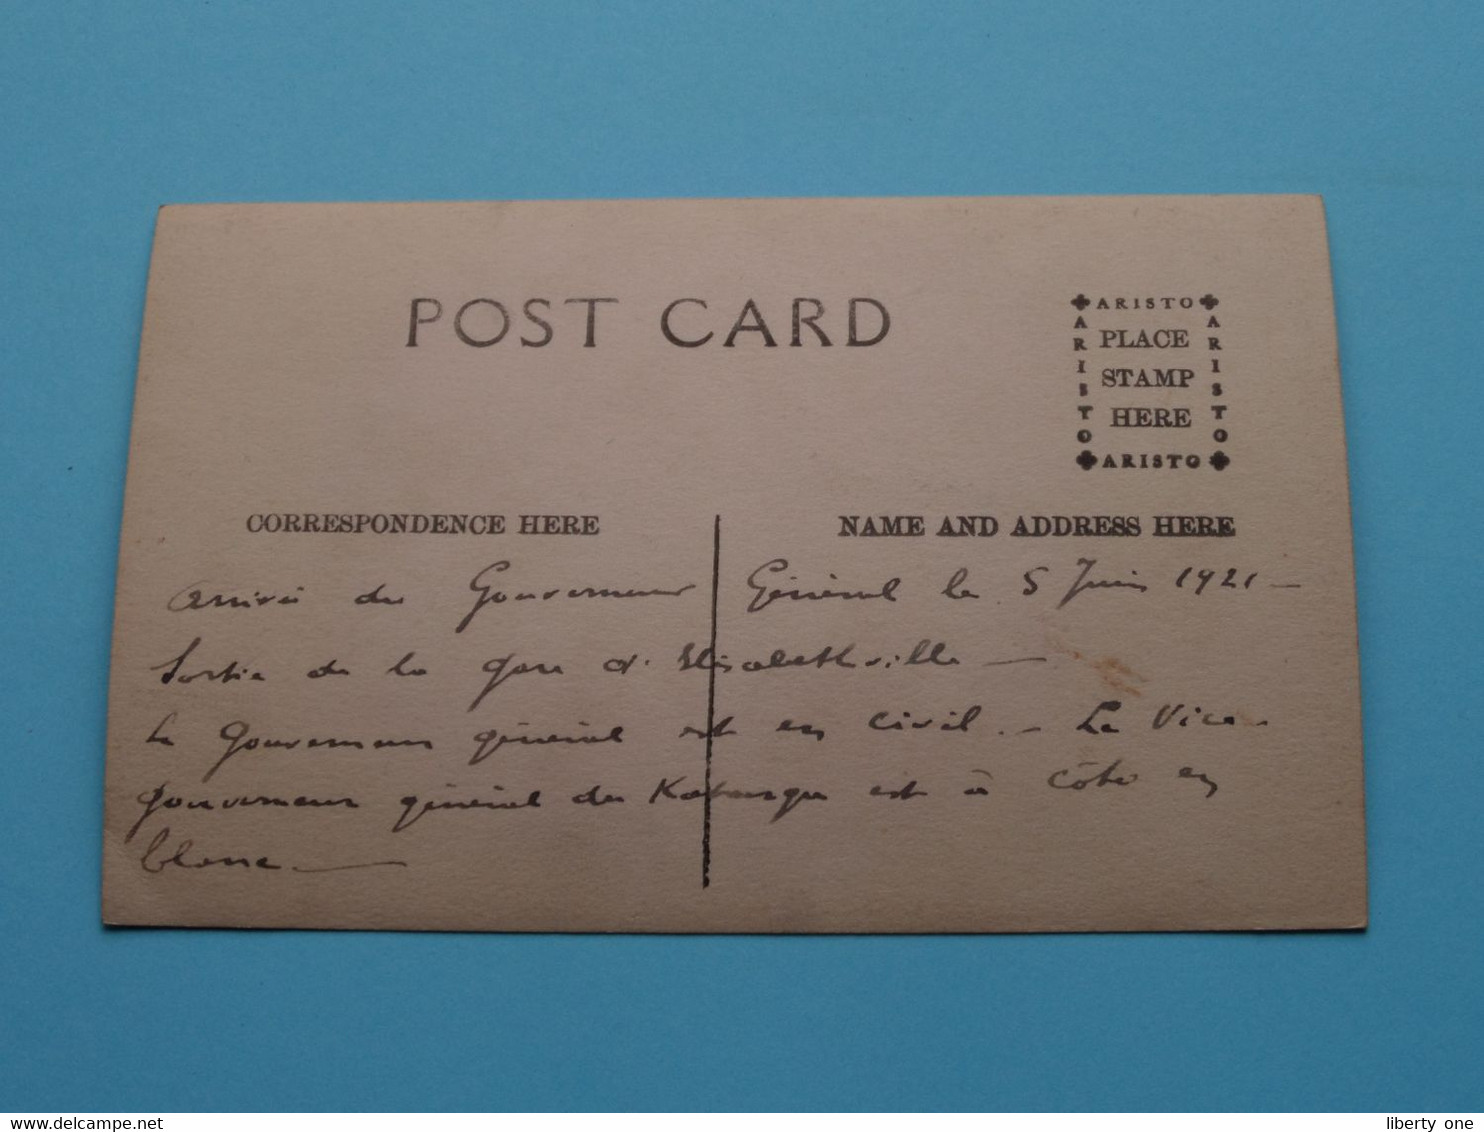 POST CARD
ARISTO
ARISTO
ARISTO
PLACE
STAMP
HERE
ARISTO
CORRESPONDENCE HERE
NAME AND ADDRESS HERE
Arrivée du Gouverneur Général le 5 Juin 1921 –
Sortie de la gare d'Elisabethville –
Le Gouverneur général est en civil. – Le Vice-
gouverneur général du Katanga est à côté en
blanc. –
delcampe.net
liberty one